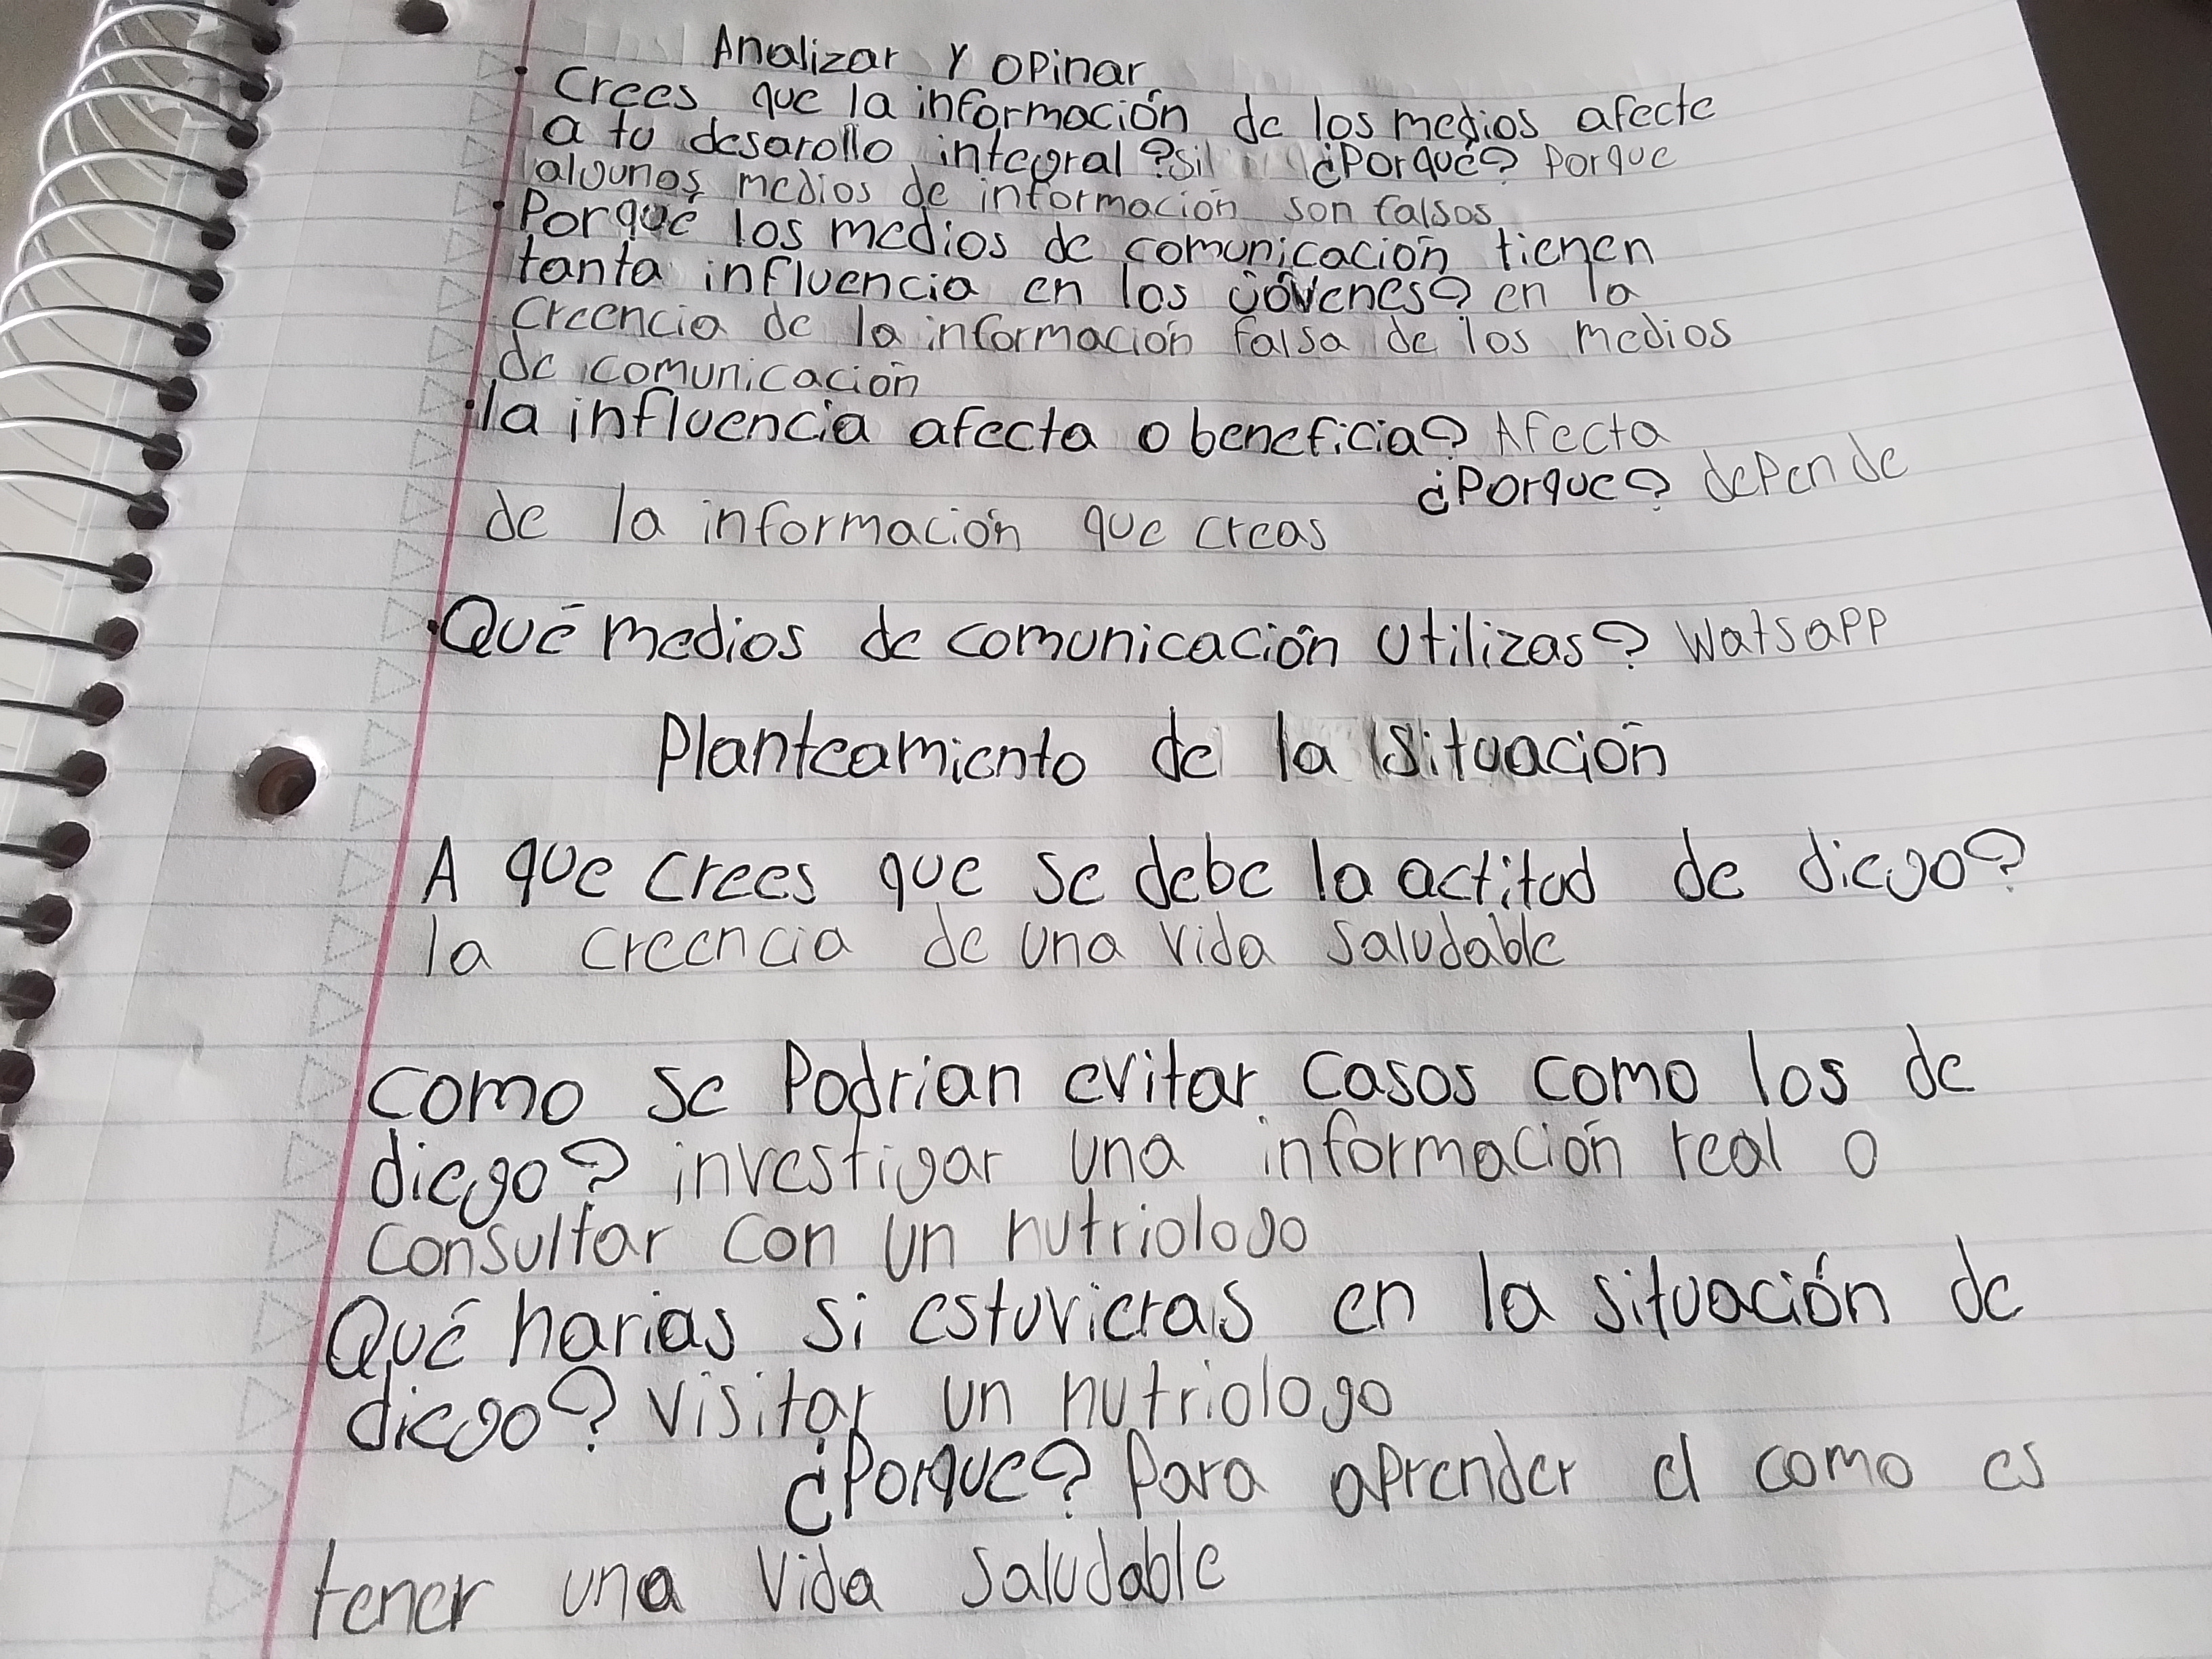 Analizar Y opinar
• Crees que la información de los medios afecte
a tu desarollo integral? si ¿Porqué? Porque
algunos medios de información son falsos
• Porqué los medios de comunicación tienen
tanta influencia en los jóvenes? en la
Creencia de la información falsa de los medios
de comunicación
• la influencia afecta o beneficia? Afecta
¿Porque? depende
de la información que creas
• Qué medios de comunicación utilizas? Watsapp
Planteamiento de la Situación
A que crees que se debe la actitud de diego?
la creencia de una vida saludable
como se Podrian evitar casos como los de
diego? investigar una información real o
consultar con un nutriologo
Qué harias si estuvieras en la situación de
diego? visitar un nutriologo
¿Porque? Para aprender el como es
tener una vida saludable